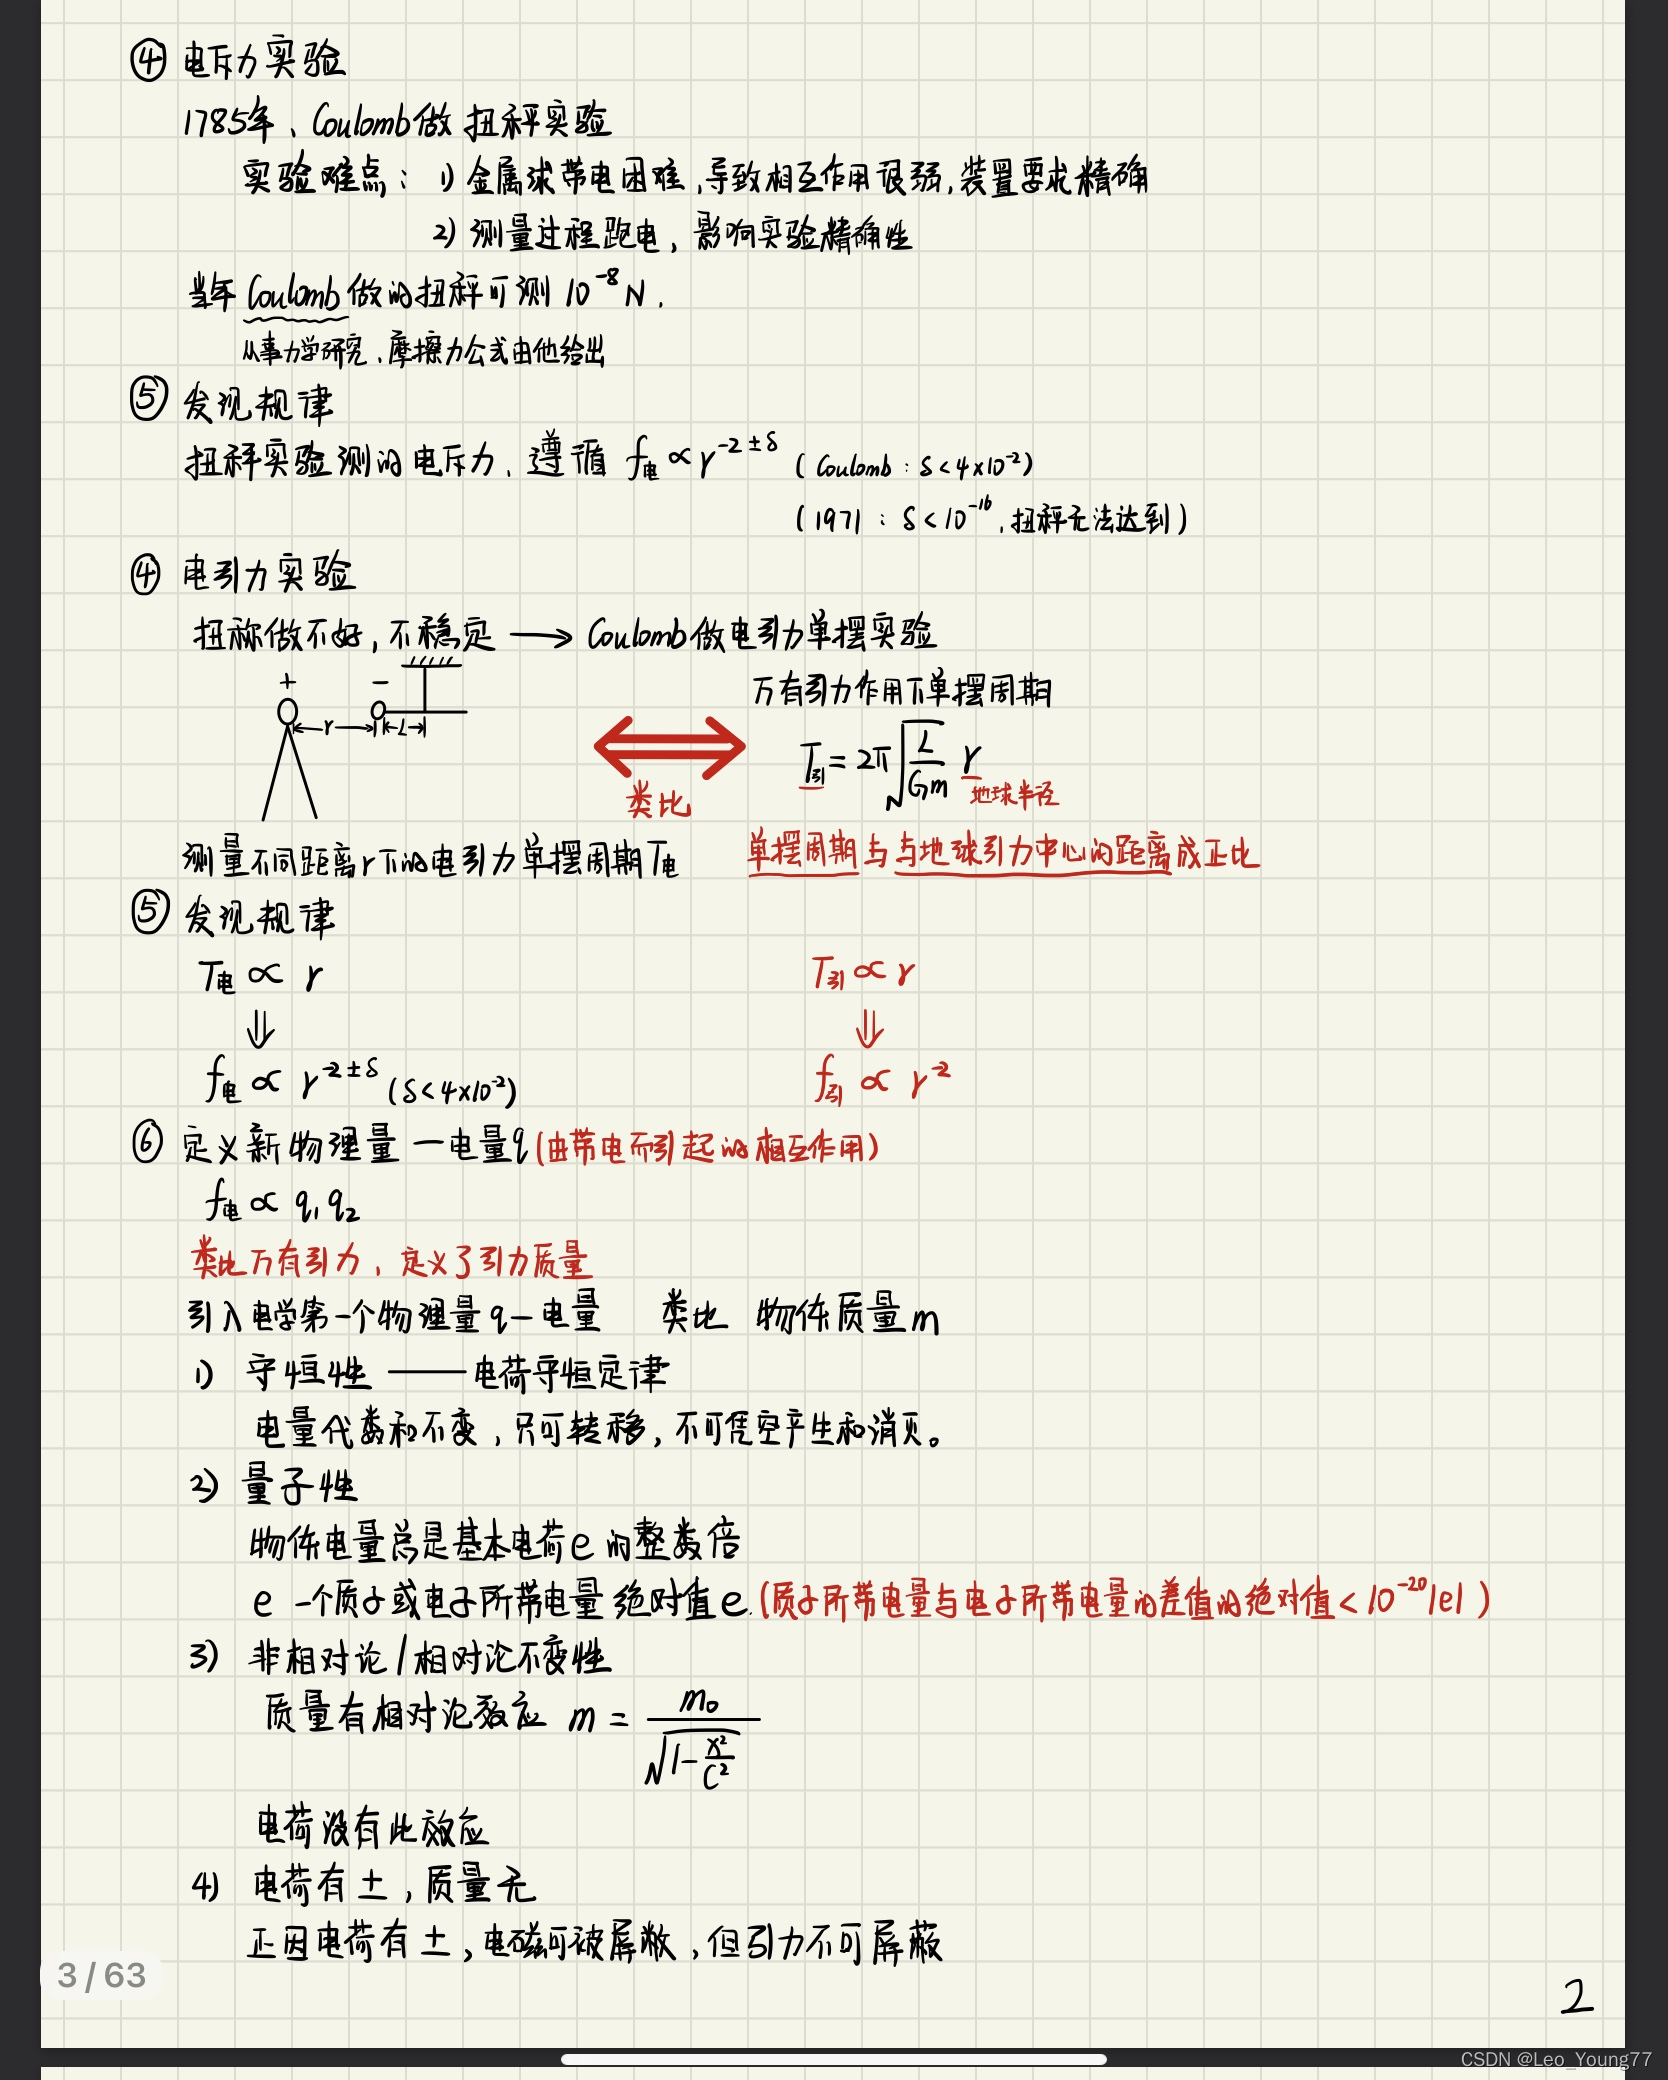 ④ 电斥力实验
1785年、Coulomb做 扭秤实验
实验难点： 1) 金属球带电困难,导致相互作用很弱,装置要求精确
2) 测量过程跑电, 影响实验精确性
当年 Coulomb 做的扭秤可测 10⁻⁸ N.
从事力学研究、摩擦力公式由他给出
⑤ 发现规律
扭秤实验测的电斥力、遵循 f电 ∝ r^(-2±δ) ( Coulomb : δ < 4×10⁻²)
( 1971 : δ < 10⁻¹⁶, 扭秤无法达到)
④ 电引力实验
扭称做不好, 不稳定 ⟶ Coulomb做电引力单摆实验
+ −
万有引力作用下单摆周期
r L
T引 = 2π √(L/Gm) r
类比 地球半径
测量不同距离r下的电引力单摆周期T电 单摆周期与与地球引力中心的距离成正比
⑤ 发现规律
T电 ∝ r T引 ∝ r
⇓ ⇓
f电 ∝ r^(-2±δ) (δ<4×10⁻²) f引 ∝ r⁻²
⑥ 定义新物理量 — 电量q (由带电而引起的相互作用)
f电 ∝ q₁q₂
类比万有引力、定义了引力质量
引入电学第一个物理量 q — 电量 类比 物体质量m
1) 守恒性 —— 电荷守恒定律
电量代数和不变, 只可转移, 不可凭空产生和消灭。
2) 量子性
物体电量总是基本电荷e的整数倍
e 一个质子或电子所带电量绝对值e. (质子所带电量与电子所带电量的差值的绝对值<10⁻²⁰|e|)
3) 非相对论 / 相对论不变性
质量有相对论效应 m = m₀/√(1-x²/c²)
电荷没有此效应
4) 电荷有±, 质量无
正因电荷有±, 电磁可被屏蔽, 但引力不可屏蔽
3 / 63
2
CSDN @Leo_Young77